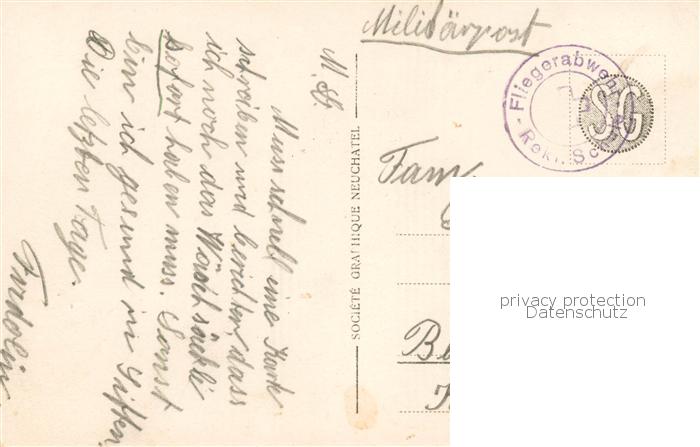 Militärpost
Fliegerabwehr
Rekr. Sc
SG
M. Lb.
Muss schnell eine Karte
schreiben und berichten, dass
ich noch das Wäschsäckli
sofort haben muss. Sonst
bin ich gesund in Sitten.
Die letzten Tage.
Fridolin
SOCIÉTÉ GRAPHIQUE NEUCHATEL
Fam
privacy protection
Datenschutz